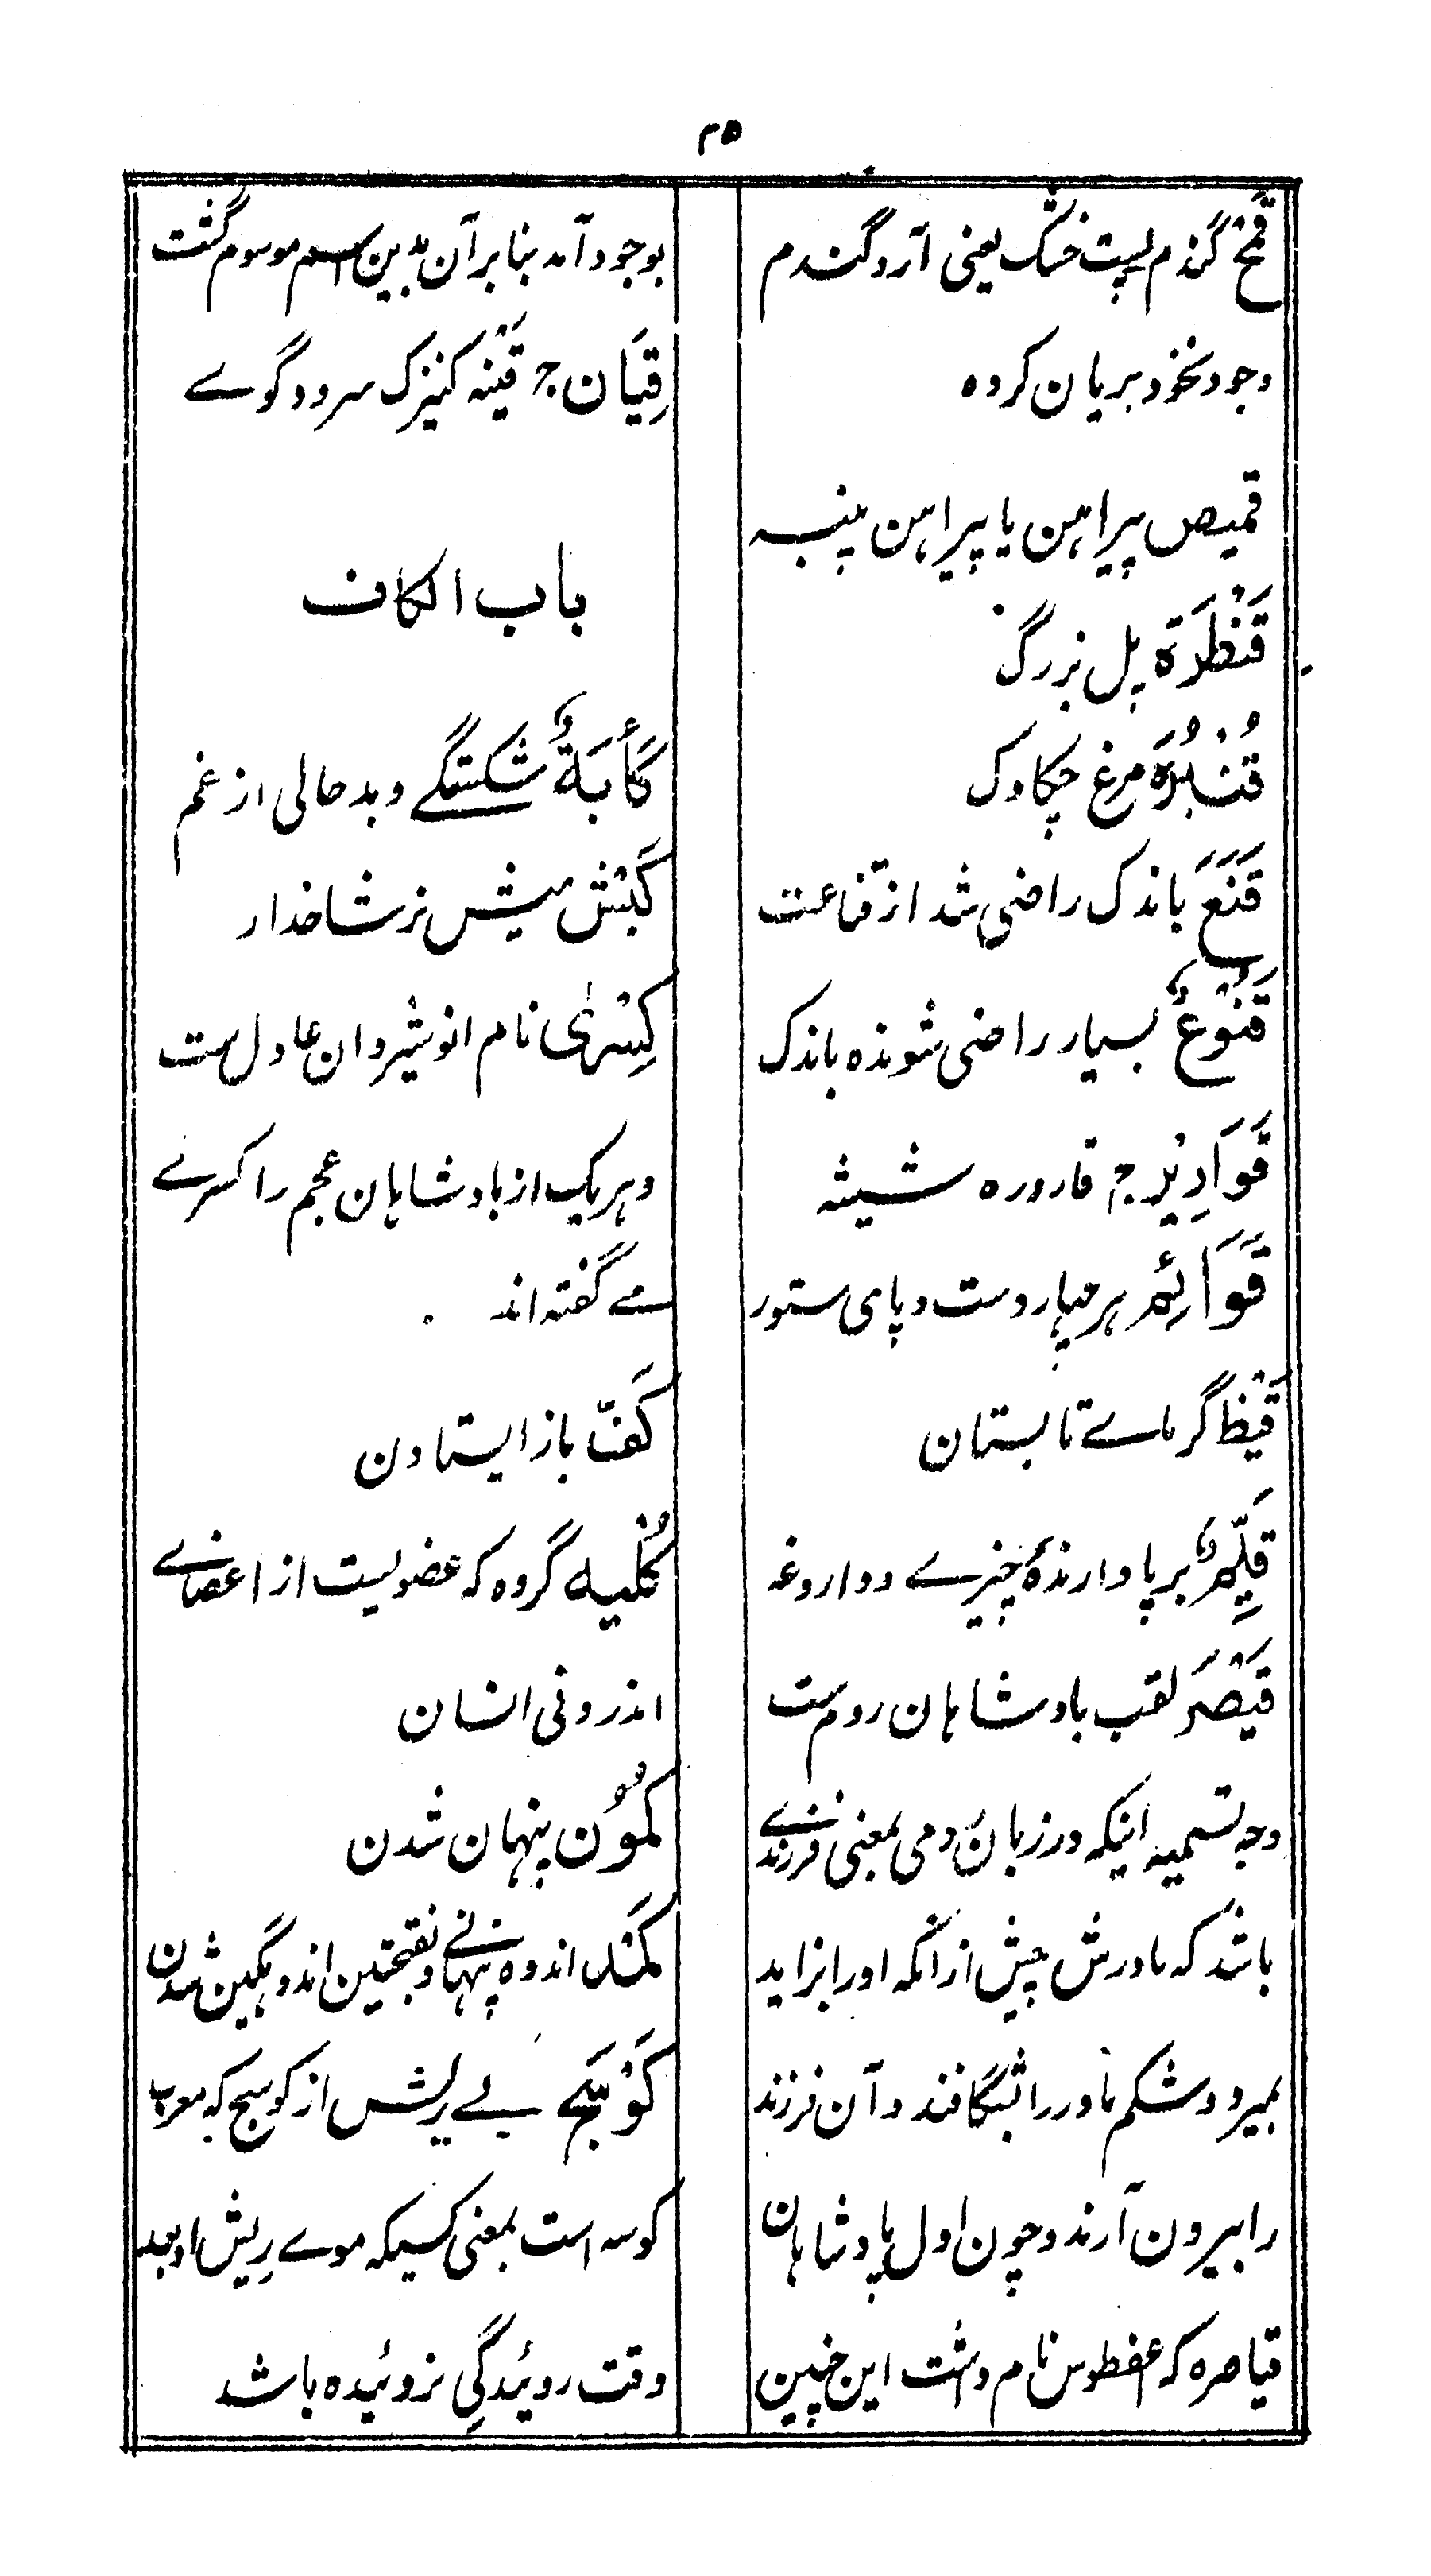 ۳۵
قَمْح گندم پست خشک یعنی آرد گندم
وجو و نخود بریان کرده
قمیص پیراهن یا پیراهن پنبه
قَنْطَرَة پل بزرگ
قُنْبُرَه مرغ چکاوک
قَنَعَ باندک راضی شد از قناعت
قَنُوْعٌ بسیار راضی شونده باندک
قَوَارِیْر ج قاروره شیشه
قَوَائِم هر چهار دست و پای ستور
قَیْظ گرماے تابستان
قَیِّمٌ برپا دارندهٔ چیزے و داروغه
قَیْصَر لقب بادشاهان روم ست
وجه تسمیه اینکه در زبان رومی بمعنی فرزندے
باشد که مادرش پیش ازانکه او را بزاید
بمیرد و شکم مادر را بشگافند و آن فرزند
را بیرون آرند و چون اول پادشاهان
قیاصره که اغطوس نام داشت این چنین
بوجود آمد بنابرآن بدین اسم موسوم گشت
قِیَان ج قَیْنه کنیزک سرود گوے
باب الکاف
کَأْبَةٌ شکستگے و بدحالی از غم
کَبْش میش نر شاخدار
کِسْرٰی نام انوشیروان عادل ست
و هر یک از بادشاهان عجم را کسرے
مے گفته اند
کَفّ باز ایستادن
کُلْیه گروه که عضویست از اعضاے
اندرونی انسان
کُمُوْن پنهان شدن
کَمَد اندوه پنهانے و بفتحتین اندوهگین شدن
کَوْسَج بے ریش از کوسج که معرب
کوسه است بمعنی کسیکه موے رِیش او بعد
وقت روئیدگی نروئیده باشد